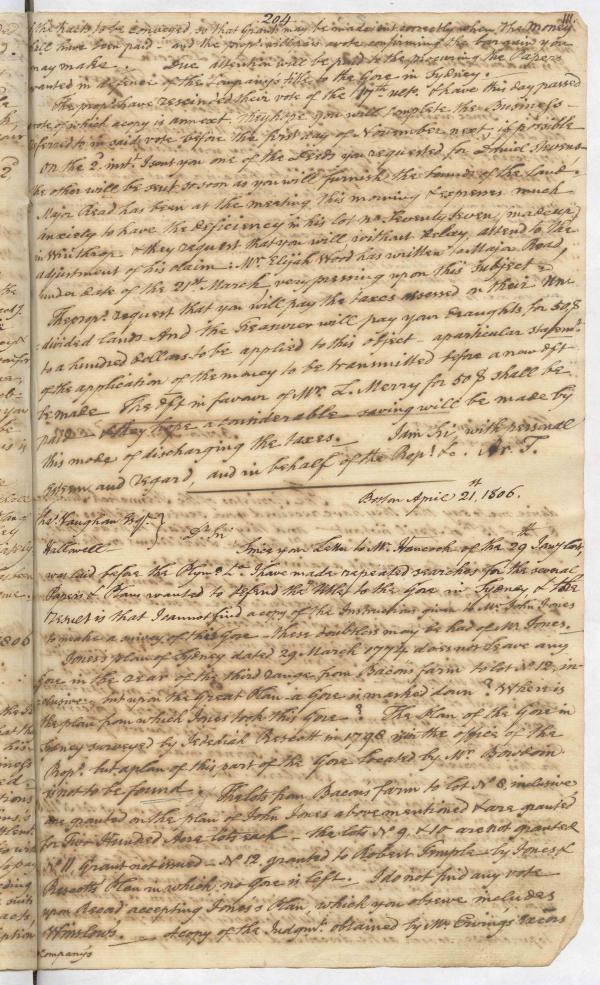 204
111.
of the tracts to be conveyed, so that Grants may be made out correctly when the Money
shall have been paid: and the propr. will pass a vote confirming the bargains you
may make. Due attention will be paid to the procuring the Papers
wanted in defence of the Company's title to the Gore in Sydney.
The propr. have rescinded their vote of the 17th ulto. & have this day passed
vote of which a copy is annext. They hope you will complete the Business
referred to in said vote before the first day of November next, if possible
On the 2d. inst. I sent you one of the Deeds you requested for Daniel Stevens
the other will be sent so soon as you will furnish the bounds of the land.
Major Read has been at the meeting this morning & expresses much
anxiety to have the deficiency in his lot no. Seventy Seven, made up
in Winthrop & they request that you will, without delay, attend to the
adjustment of his claim. Mr. Elijah Wood has written to Major Read,
under date of the 21st March, very pressing upon this subject.
The propr. request that you will pay the taxes assessed on their un-
divided lands. And the Treasurer will pay your draughts for 50$
to a hundred dollars to be applied to this object - a particular statemt.
of the application of the money to be transmitted before a new dft
be made. The dft in favour of Mr. L. Merry for 50$ shall be
paid - & they hope a considerable saving will be made by
this mode of discharging the taxes. I am Sir with personal
esteem and regard, and in behalf of the Propr. &c. Ar. T.
Boston April 21st. 1806.
Chs. Vaughan Esqr.
Hallowell } Dr. Sir
Since your Letter to Mr. Hancock of the 29th Jany
was laid before the Plymo. Co. I have made repeated searches for the several
Papers & Plans wanted to defend the title to the Gore in Sydney & the
result is that I cannot find a copy of the Instructions given to Mr. John Jones
to make a survey of this Gore - these doubtless may be had of Mr. Jones.
Jones's plan of Sydney dated 29 March 1774 does not leave any
Gore in the rear of the third range from Bacons farm to lot No. 12, in-
clusive, but upon the Great Plan a Gore is marked down? Where is
the plan from which Jones took this Gore? The Plan of the Gore in
Sydney surveyed by Jedediah Prescott in 1798 is in the office of the
Propr. but a plan of this part of the Gore located by Mr. Bowdoin
is not to be found. The lots from Bacons farm to lot No. 8, inclusive
are granted on the plan of John Jones above mentioned & are granted
for Two Hundred Acre lots each - the lots No. 9, & 10 are not granted
No. 11 Grant not issued - No. 12 granted to Robert Temple - by Jones &
Prescotts Plan in which no Gore is left. I do not find any vote
upon Record accepting Jones's Plan, which you observe includes
Winslows. A copy of the Judgmt. obtained by Mr. Ewings
Company's